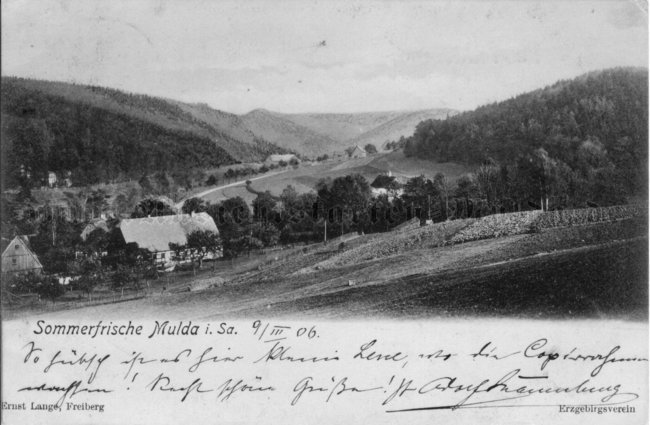 Sommerfrische Mulda i. Sa. 9/III 06.
So hübsch ist es hier, kleine Lene, wo die
wachsen! Recht schöne Grüße!
Ernst Lange, Freiberg
Erzgebirgsverein